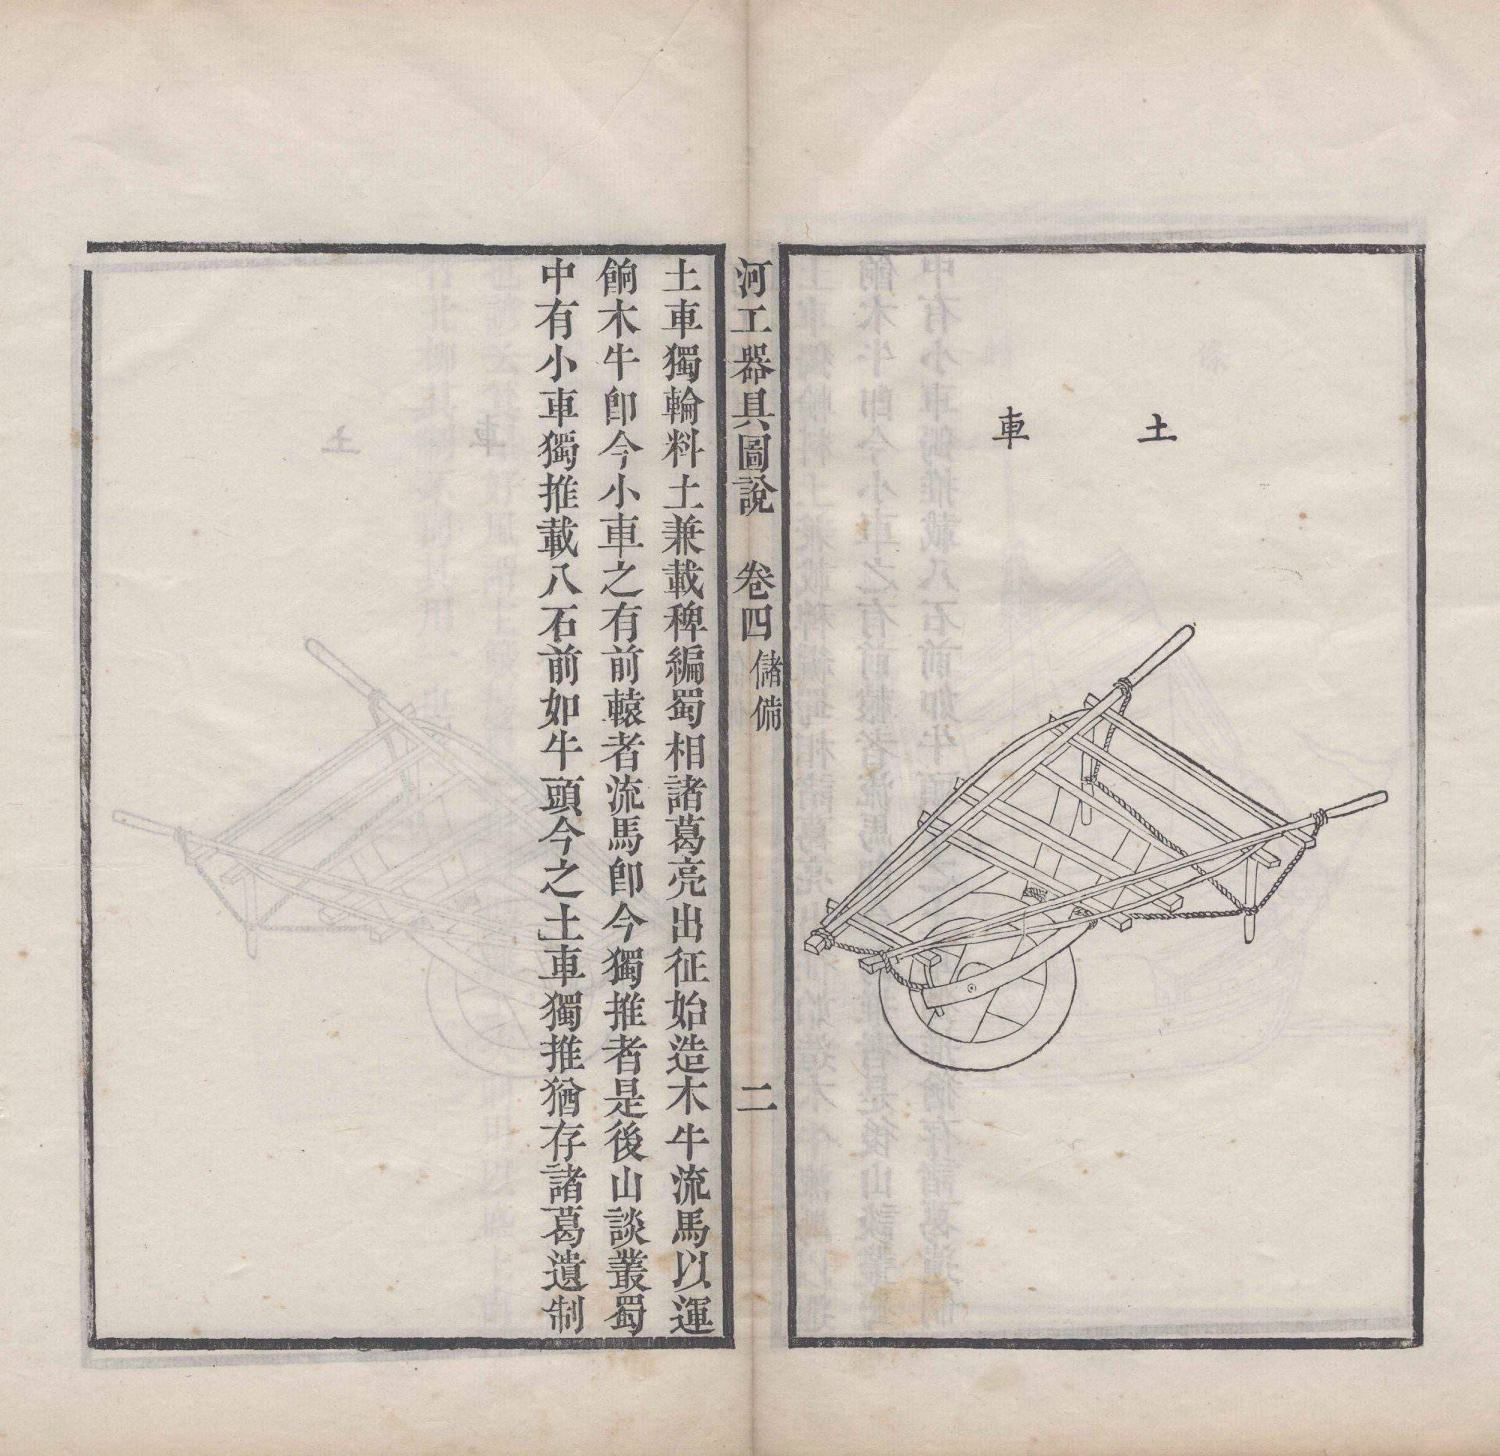 土車
河工器具圖說 卷四 儲備 二
土車獨輪料土兼載稗編蜀相諸葛亮出征始造木牛流馬以運
餉木牛卽今小車之有前轅者流馬卽今獨推者是後山談叢蜀
中有小車獨推載八石前如牛頭今之土車獨推猶存諸葛遺制